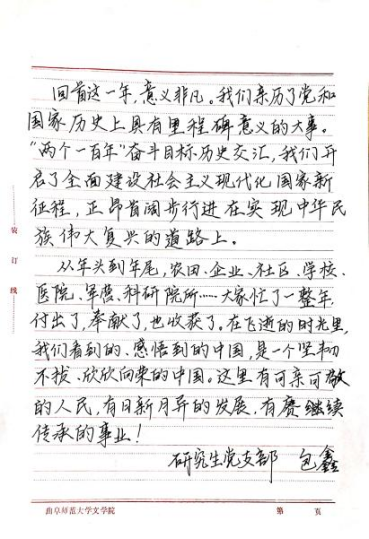 回首这一年,意义非凡。我们亲历了党和
国家历史上具有里程碑意义的大事。
“两个一百年”奋斗目标历史交汇,我们开
启了全面建设社会主义现代化国家新
征程,正昂首阔步行进在实现中华民
族伟大复兴的道路上。
从年头到年尾,农田、企业、社区、学校、
医院、军营、科研院所……大家忙了一整年,
付出了,奉献了,也收获了。在飞逝的时光里,
我们看到的、感悟到的中国,是一个坚韧
不拔、欣欣向荣的中国。这里有可亲可敬
的人民,有日新月异的发展,有赓续
传承的事业!
研究生党支部 包鑫
装订线
曲阜师范大学文学院 第 页